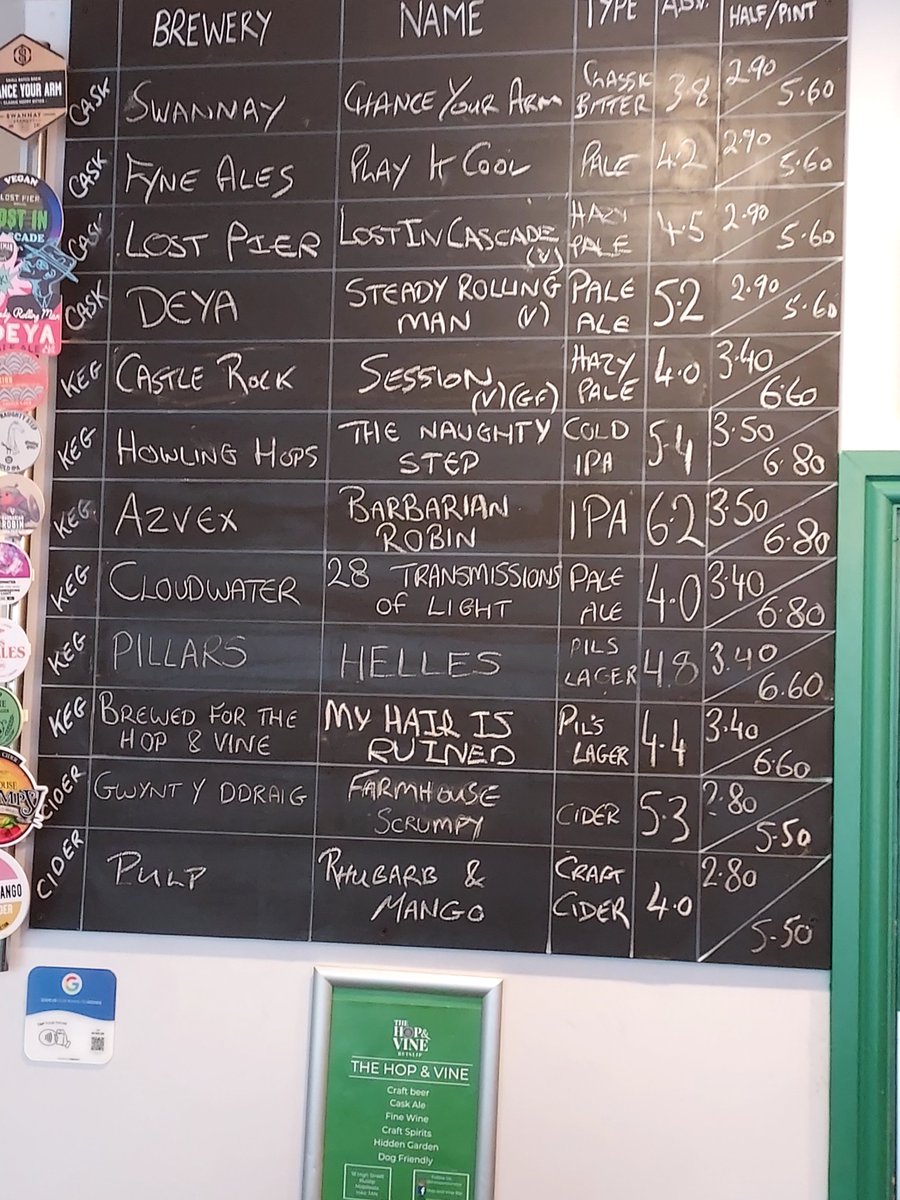 BREWERY NAME TYPE A.B.V. HALF/PINT
CASK SWANNAY CHANCE YOUR ARM CLASSIC BITTER 3.8 2.90 5.60
CASK FYNE ALES PLAY IT COOL PALE 4.2 2.90 5.60
CASK LOST PIER LOST IN CASCADE (V) HAZY PALE 4.5 2.90 5.60
CASK DEYA STEADY ROLLING MAN (V) PALE ALE 5.2 2.90 5.60
KEG CASTLE ROCK SESSION (V)(GF) HAZY PALE 4.0 3.40 6.60
KEG HOWLING HOPS THE NAUGHTY STEP COLD IPA 5.4 3.50 6.80
KEG AZVEX BARBARIAN ROBIN IPA 6.2 3.50 6.80
KEG CLOUDWATER 28 TRANSMISSIONS OF LIGHT PALE ALE 4.0 3.40 6.80
KEG PILLARS HELLES PILS LAGER 4.8 3.40 6.60
KEG BREWED FOR THE HOP & VINE MY HAIR IS RUINED PIL'S LAGER 4.4 3.40 6.60
CIDER GWYNT Y DDRAIG FARMHOUSE SCRUMPY CIDER 5.3 2.80 5.50
CIDER PULP RHUBARB & MANGO CRAFT CIDER 4.0 2.80 5.50
ANCE YOUR ARM
SWANNAY
VEGAN
LOST PIER
OST IN
CADE
dy Rolling Man
DEYA
ROBIN
LES
OUSE
MPY
ANGO
DER
G
THE
HOP&
VINE
RUISLIP
THE HOP & VINE
Craft beer
Cask Ale
Fine Wine
Craft Spirits
Hidden Garden
Dog Friendly
18 High Street
Ruislip